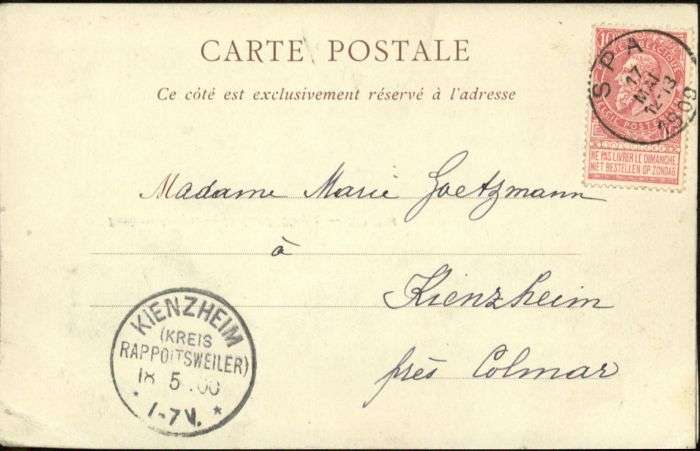 CARTE POSTALE
Ce côté est exclusivement réservé à l'adresse
SPA
17
MAI
12-13
NE PAS LIVRER LE DIMANCHE
NIET BESTELLEN OP ZONDAG
Madame Marie Goetzmann
à
Kienzheim
près Colmar
KIENZHEIM
(KREIS
RAPPOLTSWEILER)
18 5 .00
* 7-7V. *